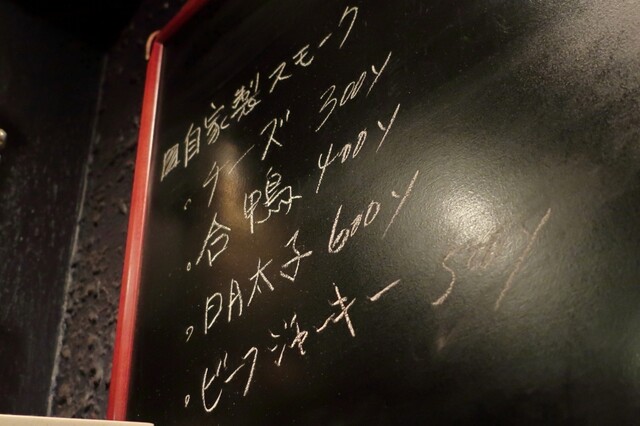 自家製スモーク
・チーズ 300y
・合鴨 400y
・明太子 600y
・ビーフジャーキー 500y